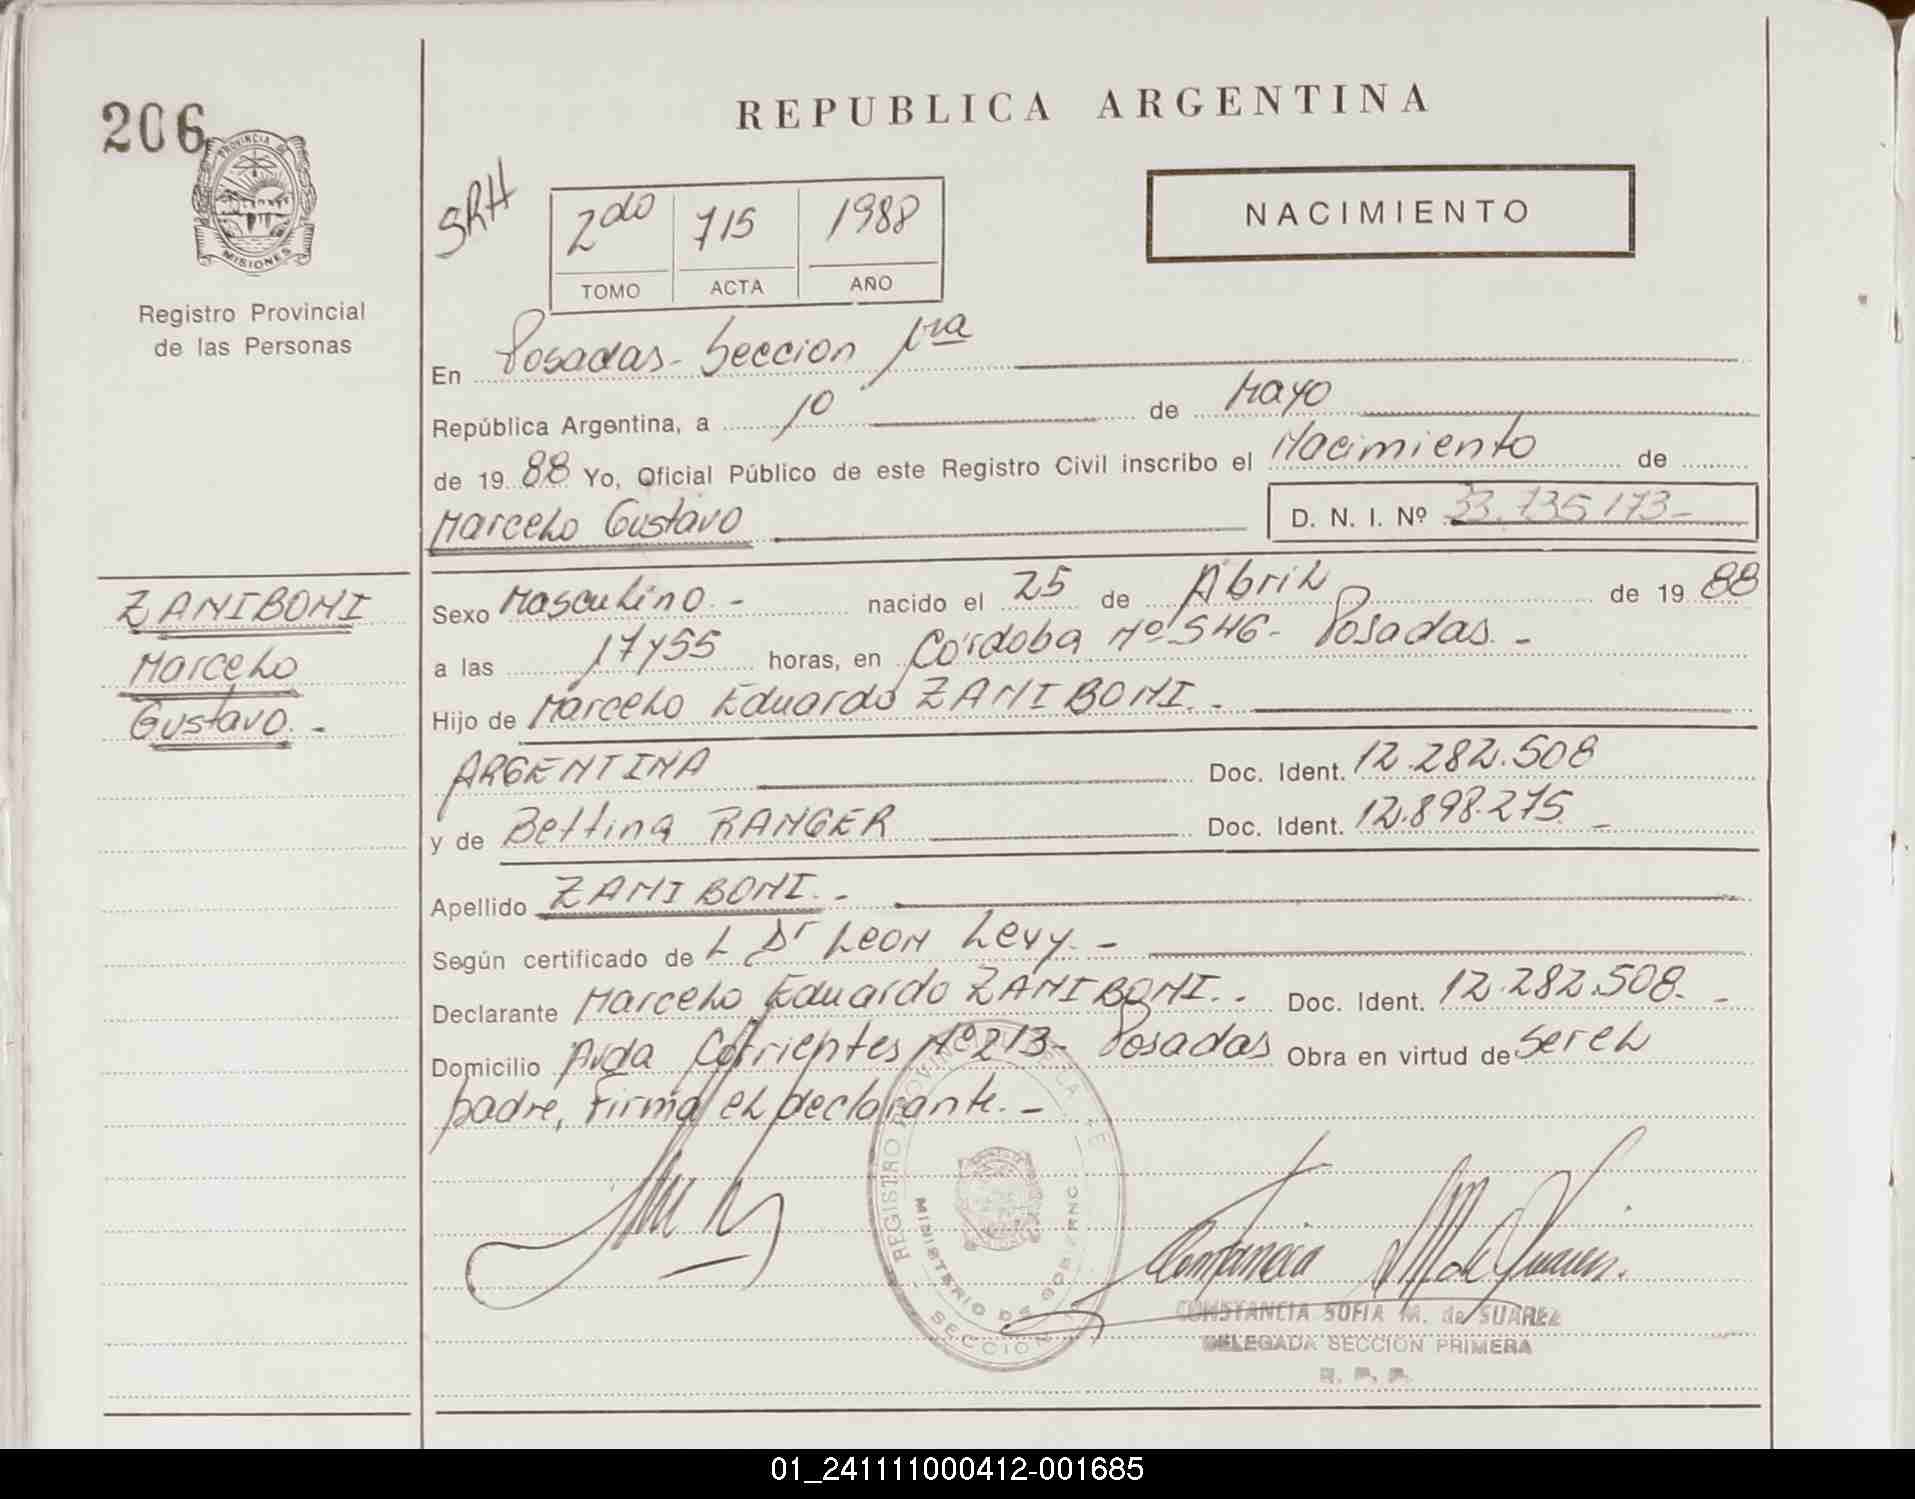 206
PROVINCIA DE
MISIONES
Registro Provincial
de las Personas
REPUBLICA ARGENTINA
SRH
2do 715 1988
TOMO ACTA AÑO
NACIMIENTO
En Posadas - Seccion 1ra
República Argentina, a 10 de Mayo
de 19 88 Yo, Oficial Público de este Registro Civil inscribo el Nacimiento de
Marcelo Gustavo D. N. I. Nº 33.735.173-
ZANIBONI
Marcelo
Gustavo. -
Sexo Masculino. - nacido el 25 de Abril de 19 88
a las 17y55 horas, en Córdoba Nº 546 - Posadas. -
Hijo de Marcelo Eduardo ZANIBONI. -
ARGENTINA Doc. Ident. 12.282.508
y de Bettina RANGER Doc. Ident. 12.898.275. -
Apellido ZANIBONI. -
Según certificado de L Dr Leon Levy. -
Declarante Marcelo Eduardo ZANIBONI. - Doc. Ident. 12.282.508. -
Domicilio Avda Corrientes Nº 213 - Posadas Obra en virtud de ser el
padre, Firma el declarante. -
REGISTRO PROVINCIAL DE LA
MINISTERIO DE
SECCION
Constancia M de Suarez.
CONSTANCIA SOFIA M. de SUAREZ
DELEGADA SECCION PRIMERA
R. P. P.
01_241111000412-001685